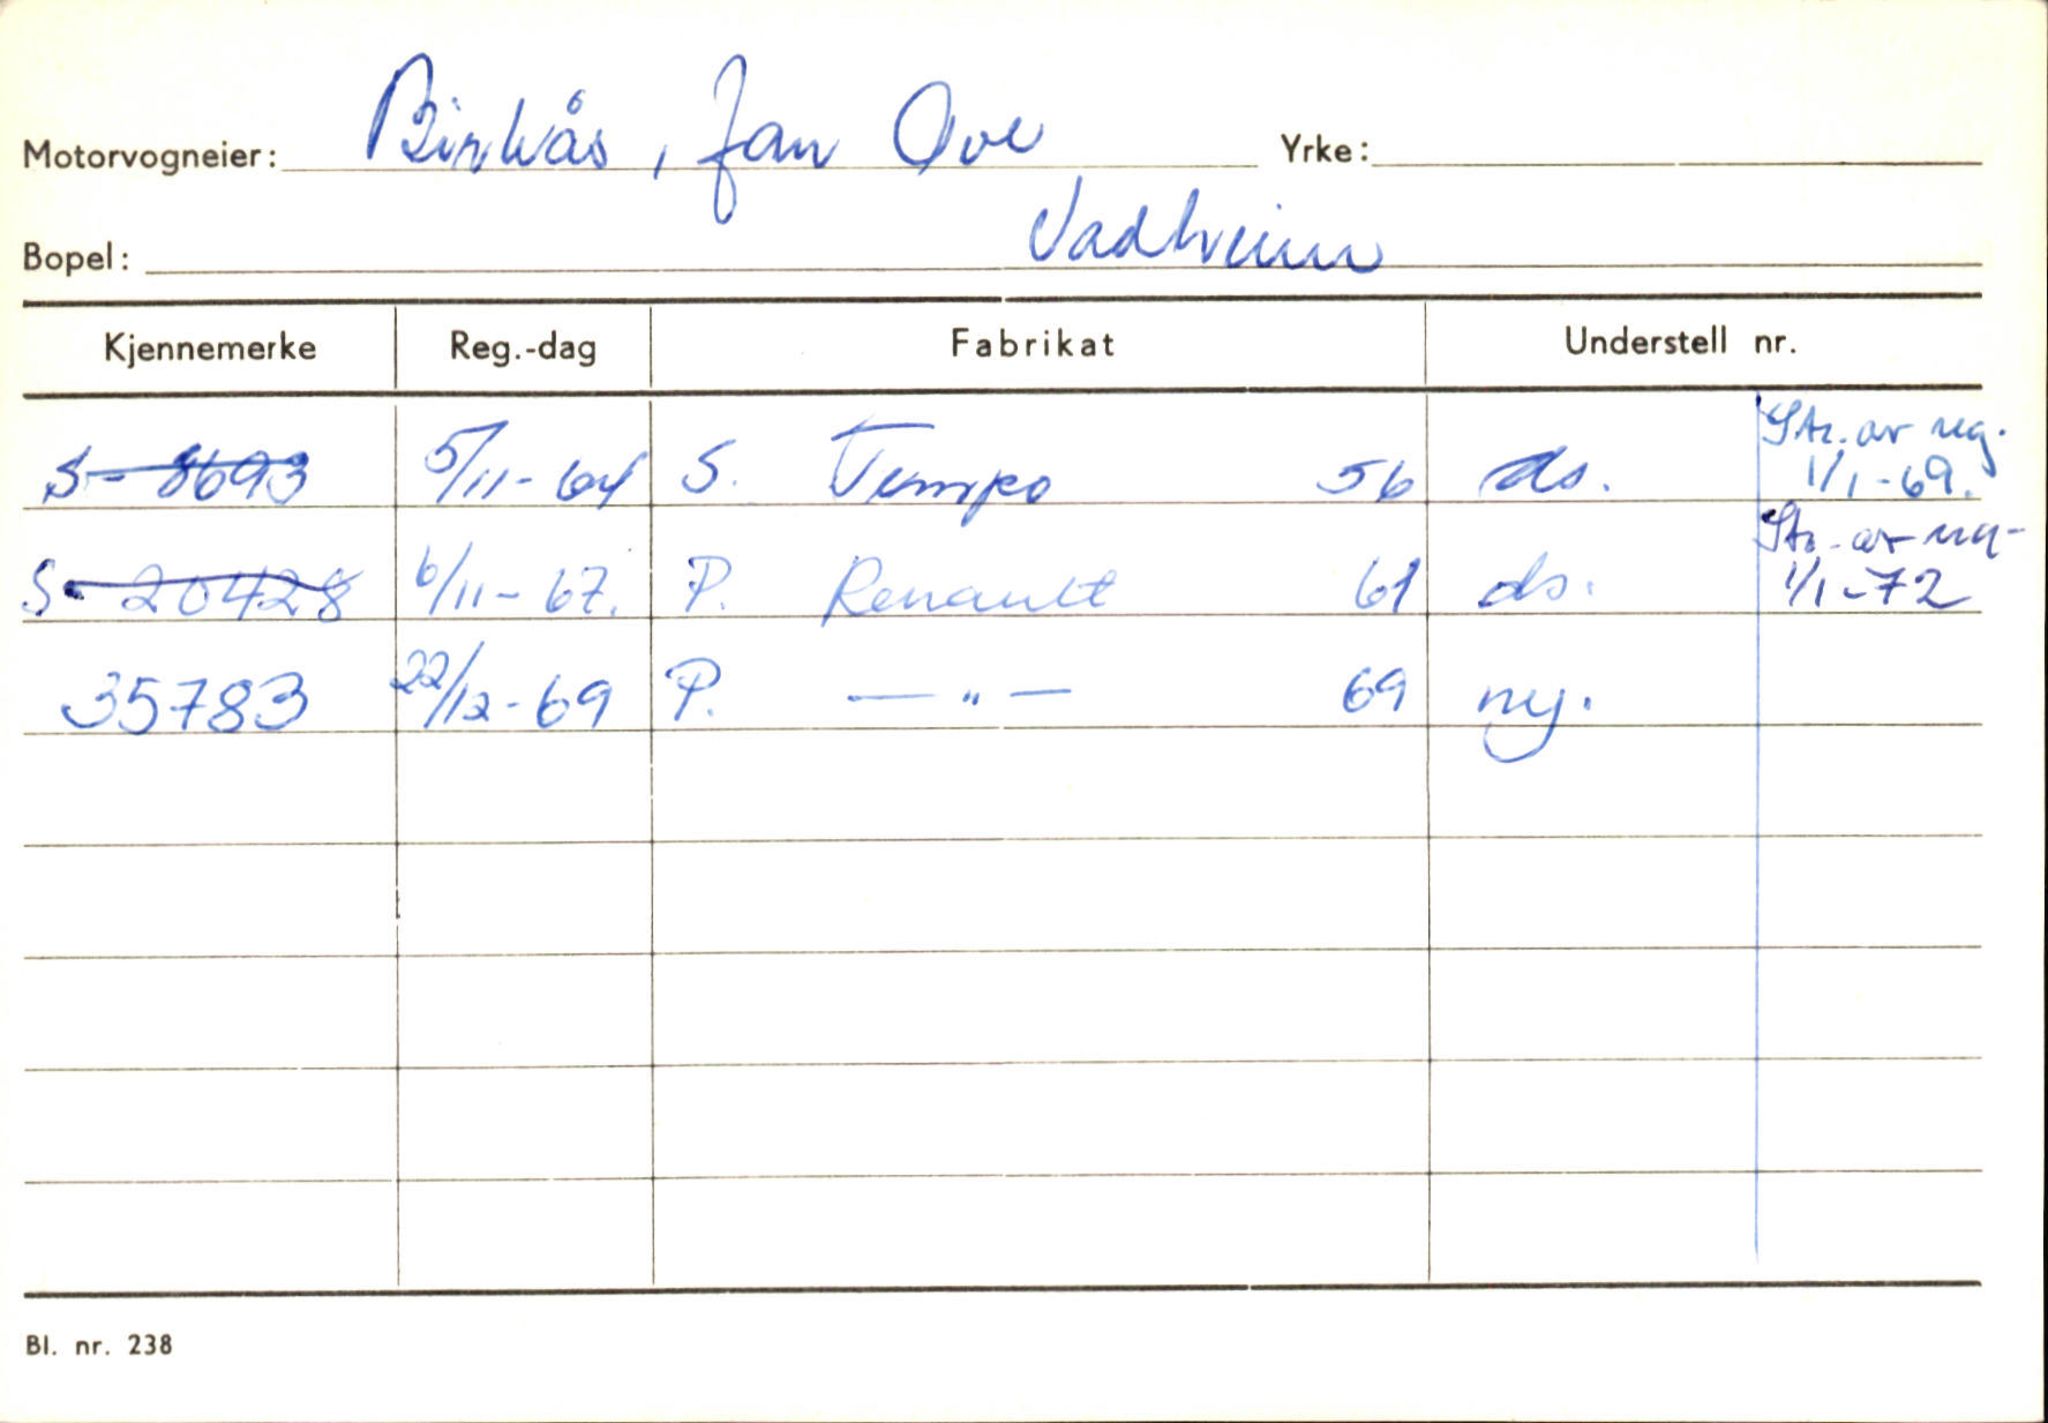 Motorvogneier: Birkås, Jan Ove Yrke:
Bopel: Vadheim
Kjennemerke Reg.-dag Fabrikat Understell nr.
S-8693 5/11-64 S. Tempo 56 ds. Str. av reg. 1/1-69.
S-20428 6/11-67. P. Renault 61 ds. Str. av reg- 1/1-72
35783 22/12-69 P. — " — 69 ny.
Bl. nr. 238